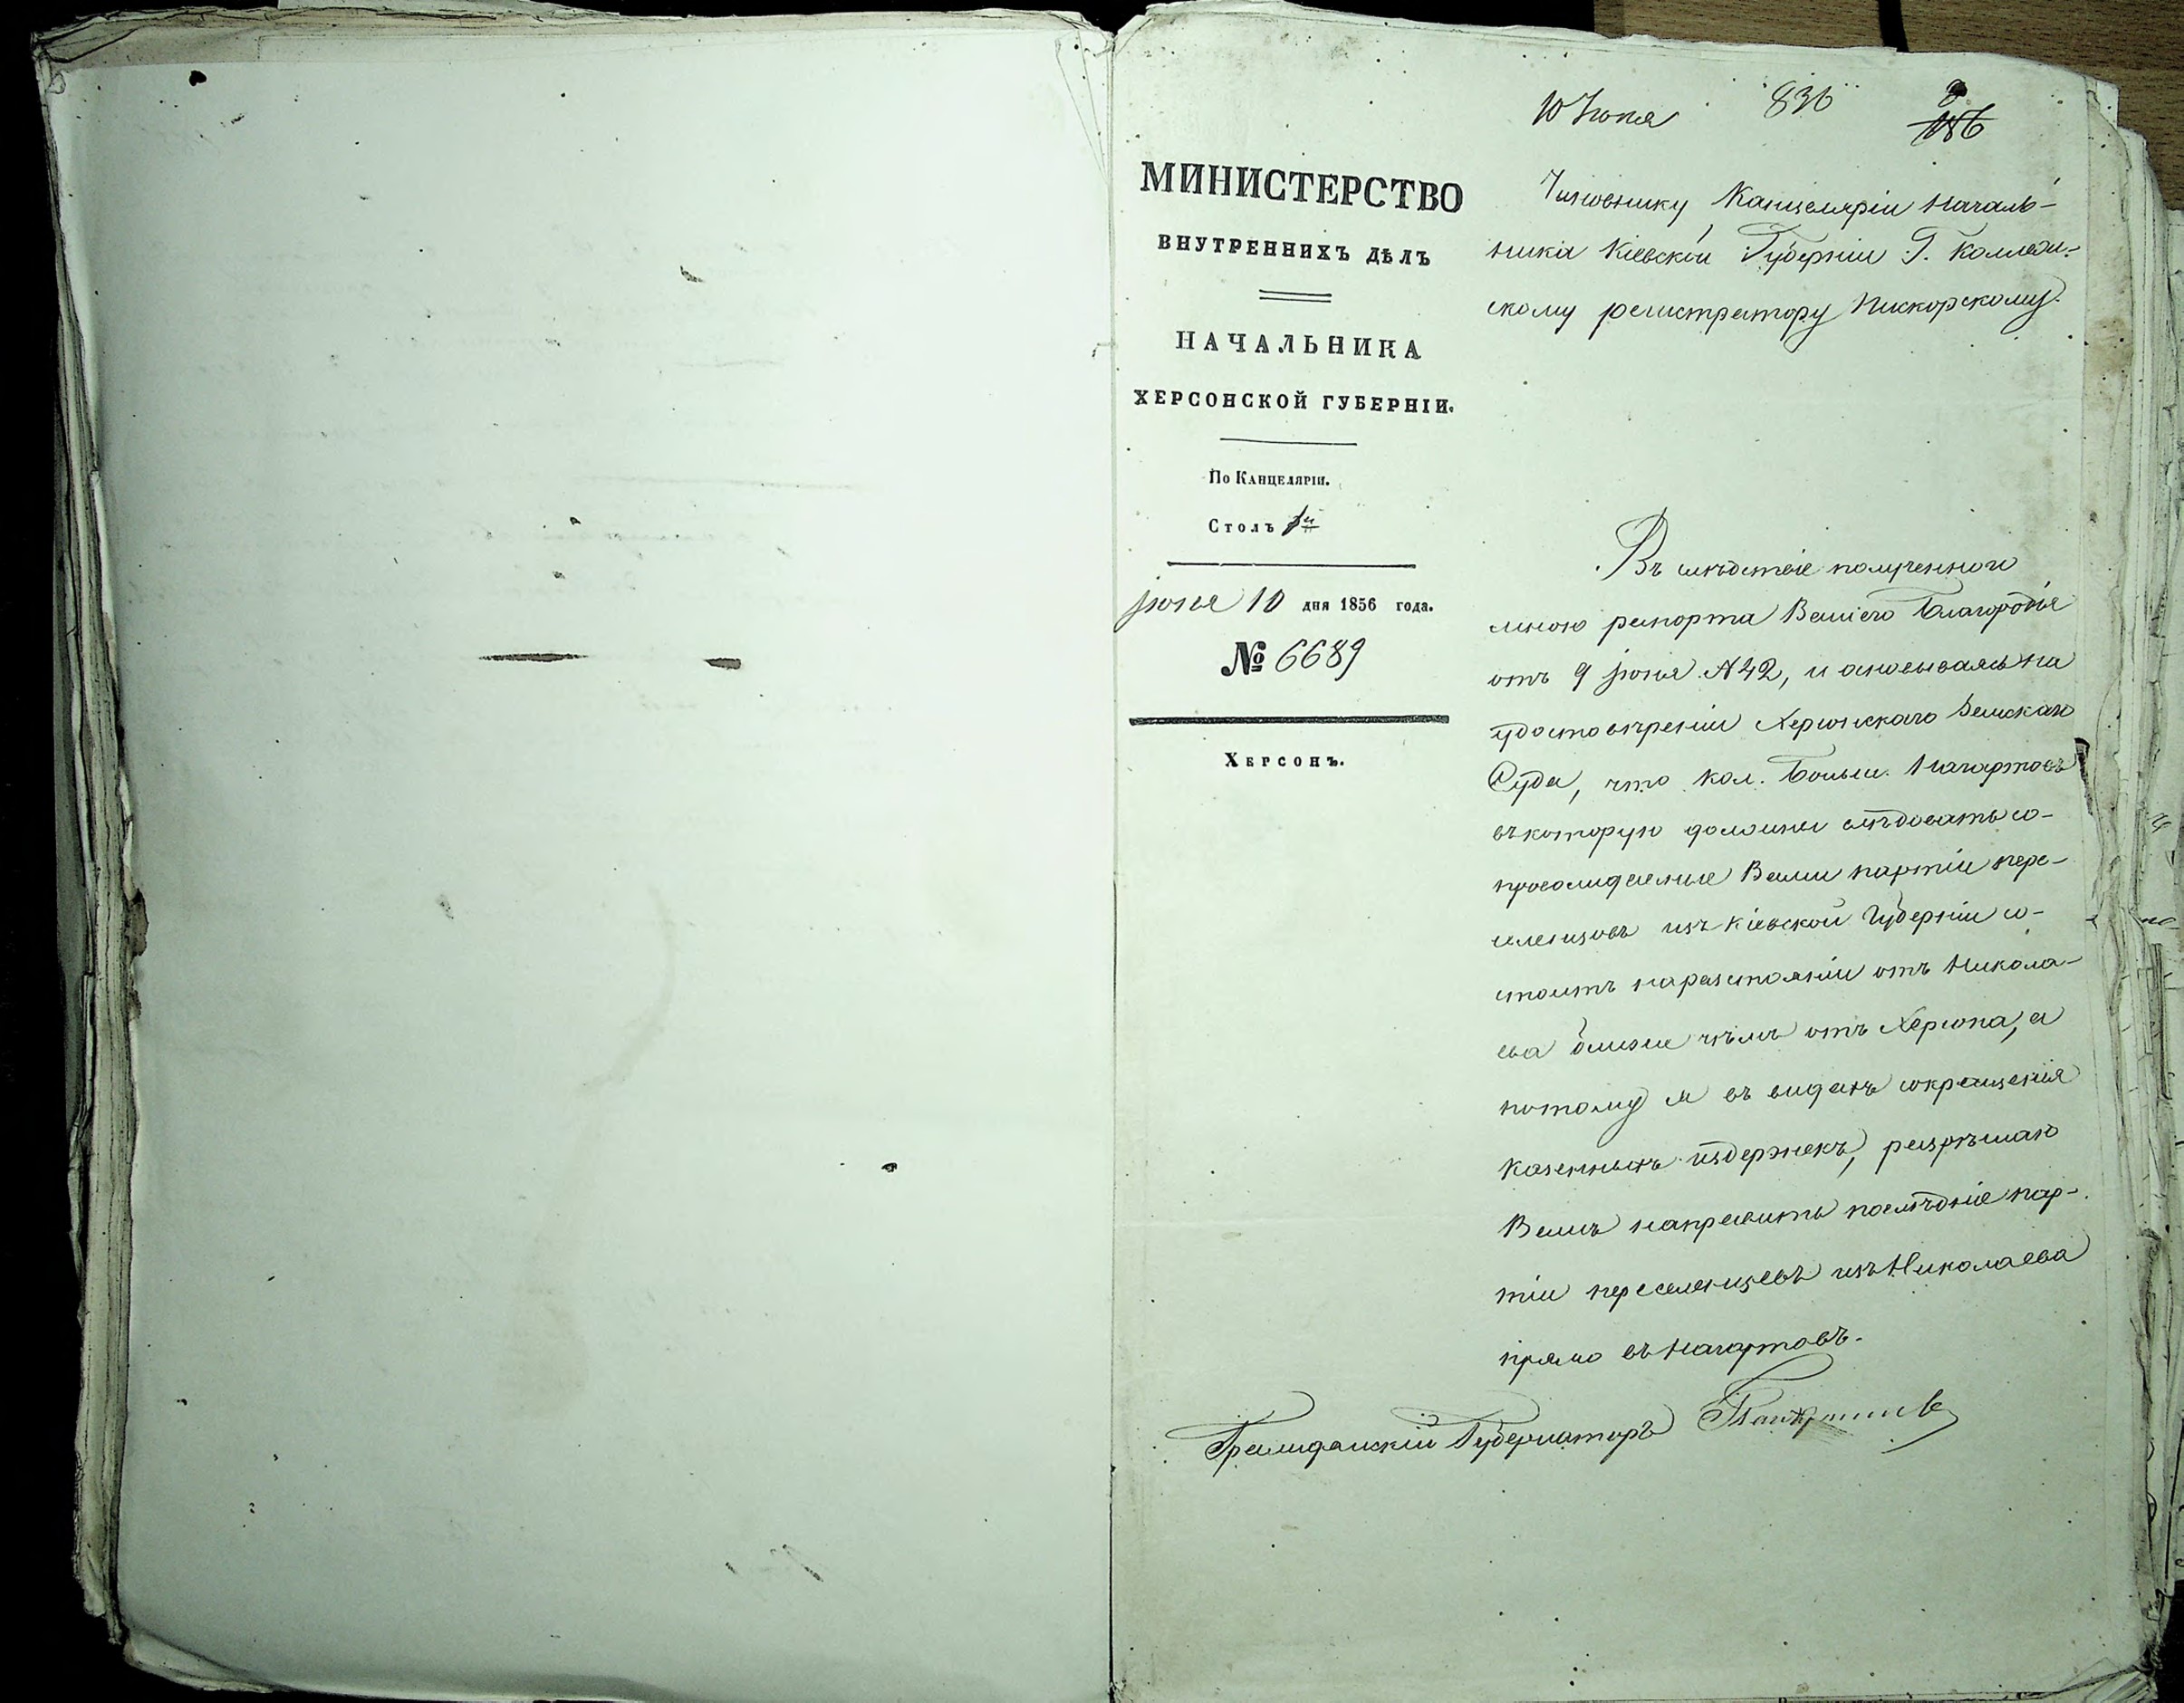 10 Іюня 836
186
МИНИСТЕРСТВО
ВНУТРЕННИХЪ ДѢЛЪ
НАЧАЛЬНИКА
ХЕРСОНСКОЙ ГУБЕРНІИ.
По Канцеляріи.
Столъ 1й
іюня 10 дня 1856 года.
№ 6689
Херсонъ.
Чиновнику Канцеляріи Началь-
ника Кіевской Губерніи Г. Коллеж-
скому регистратору Пискорскому.
Въ слѣдствіе полученного
мною рапорта Вашего Благородія
отъ 9 іюня №42, и основываясь на
удостовѣреніи Херсонскаго Земскаго
Суда, что кол. Больш. Нагартовъ
въ которую должны слѣдовать со-
провождаемые Вами партіи пере-
селенцовъ изъ Кіевской Губерніи со-
стоитъ на разстояніи отъ Никола-
ева ближе чѣмъ отъ Херсона, а
потому я въ видахъ сокращенія
казенныхъ издержекъ, разрѣшаю
Вамъ направить послѣдніе пар-
тіи переселенцевъ изъ Николаева
прямо въ Нагартовъ.
Гражданскій Губернаторъ